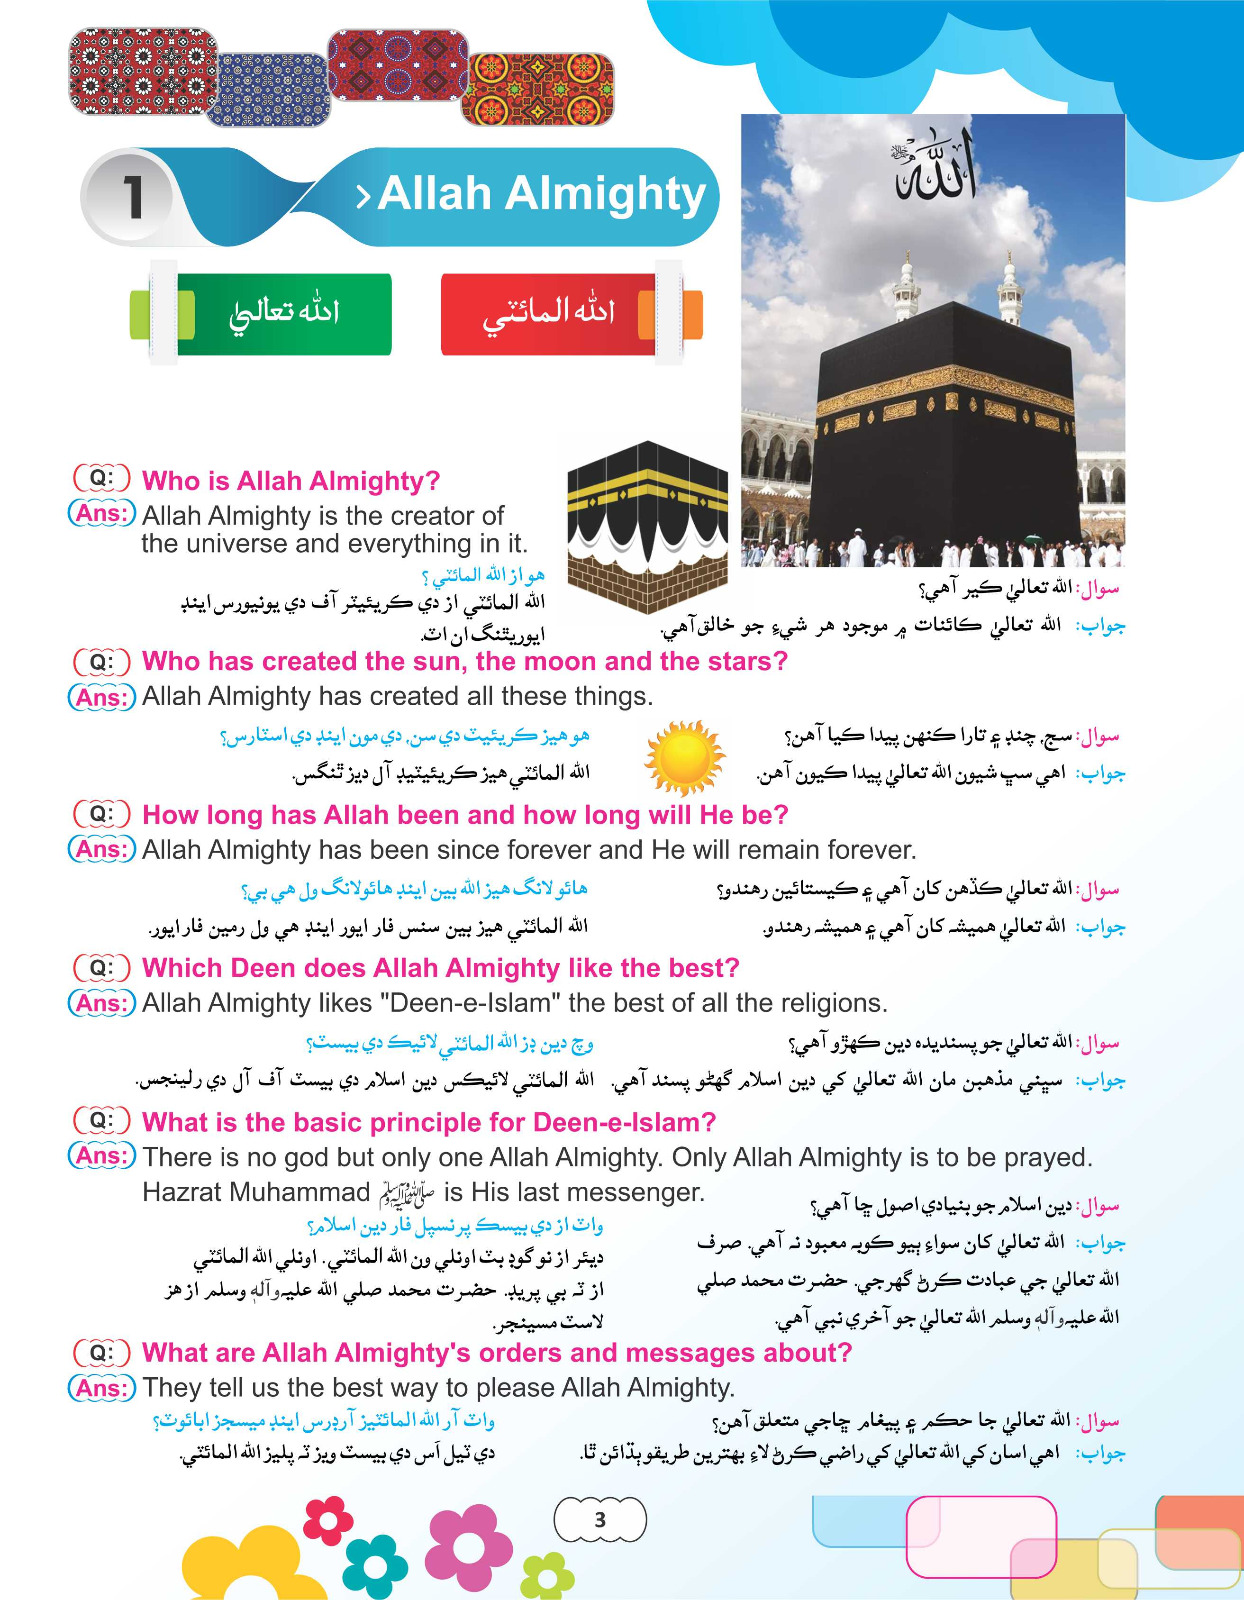 1
Allah Almighty
الله تعاليٰ
الله المائٽي
الله
Q: Who is Allah Almighty?
Ans: Allah Almighty is the creator of
the universe and everything in it.
هو از الله المائٽي ؟
الله المائٽي از دي ڪريئيٽر آف دي يونيورس اينڊ
ايوريٿنگ ان اٽ.
سوال: الله تعاليٰ ڪير آهي؟
جواب: الله تعاليٰ ڪائنات ۾ موجود هر شيءِ جو خالق آهي.
Q: Who has created the sun, the moon and the stars?
Ans: Allah Almighty has created all these things.
هو هيز ڪريئيٽ دي سن، دي مون اينڊ دي اسٽارس؟
الله المائٽي هيز ڪريئيٽيڊ آل ديز ٿنگس.
سوال: سج، چنڊ ۽ تارا ڪنهن پيدا ڪيا آهن؟
جواب: اهي سڀ شيون الله تعاليٰ پيدا ڪيون آهن.
Q: How long has Allah been and how long will He be?
Ans: Allah Almighty has been since forever and He will remain forever.
هائو لانگ هيز الله بين اينڊ هائولانگ ول هي بي؟
الله المائٽي هيز بين سنس فار ايور اينڊ هي ول رمين فار ايور.
سوال: الله تعاليٰ ڪڏهن کان آهي ۽ ڪيستائين رهندو؟
جواب: الله تعاليٰ هميشہ کان آهي ۽ هميشہ رهندو.
Q: Which Deen does Allah Almighty like the best?
Ans: Allah Almighty likes "Deen-e-Islam" the best of all the religions.
وچ دين ڊز الله المائٽي لائيڪ دي بيسٽ؟
الله المائٽي لائيڪس دين اسلام دي بيسٽ آف آل دي رلينجس.
سوال: الله تعاليٰ جو پسنديده دين ڪهڙو آهي؟
جواب: سڀني مذهبن مان الله تعاليٰ کي دين اسلام گهڻو پسند آهي.
Q: What is the basic principle for Deen-e-Islam?
Ans: There is no god but only one Allah Almighty. Only Allah Almighty is to be prayed.
Hazrat Muhammad ﷺ is His last messenger.
واٽ از دي بيسڪ پرنسپل فار دين اسلام؟
ديئر از نو گوڊ بٽ اونلي ون الله المائٽي. اونلي الله المائٽي
از ٽہ بي پريڊ. حضرت محمد صلي الله عليہ وآلہٖ وسلم از هز
لاسٽ مسينجر.
سوال: دين اسلام جو بنيادي اصول ڇا آهي؟
جواب: الله تعاليٰ کان سواءِ ٻيو ڪوبہ معبود نہ آهي. صرف
الله تعاليٰ جي عبادت ڪرڻ گهرجي. حضرت محمد صلي
الله عليہ وآلہٖ وسلم الله تعاليٰ جو آخري نبي آهي.
Q: What are Allah Almighty's orders and messages about?
Ans: They tell us the best way to please Allah Almighty.
واٽ آر الله المائٽيز آرڊرس اينڊ ميسجز ابائوٽ؟
دي ٽيل اَس دي بيسٽ ويز ٽہ پليز الله المائٽي.
سوال: الله تعاليٰ جا حڪم ۽ پيغام ڇاجي متعلق آهن؟
جواب: اهي اسان کي الله تعاليٰ کي راضي ڪرڻ لاءِ بهترين طريقو ٻڌائن ٿا.
3